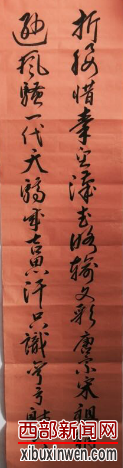 折腰惜秦皇汉武略输文采唐宗宋祖稍
逊风骚一代天骄成吉思汗只识弯弓射
西部新闻网
xibuxinwen.com